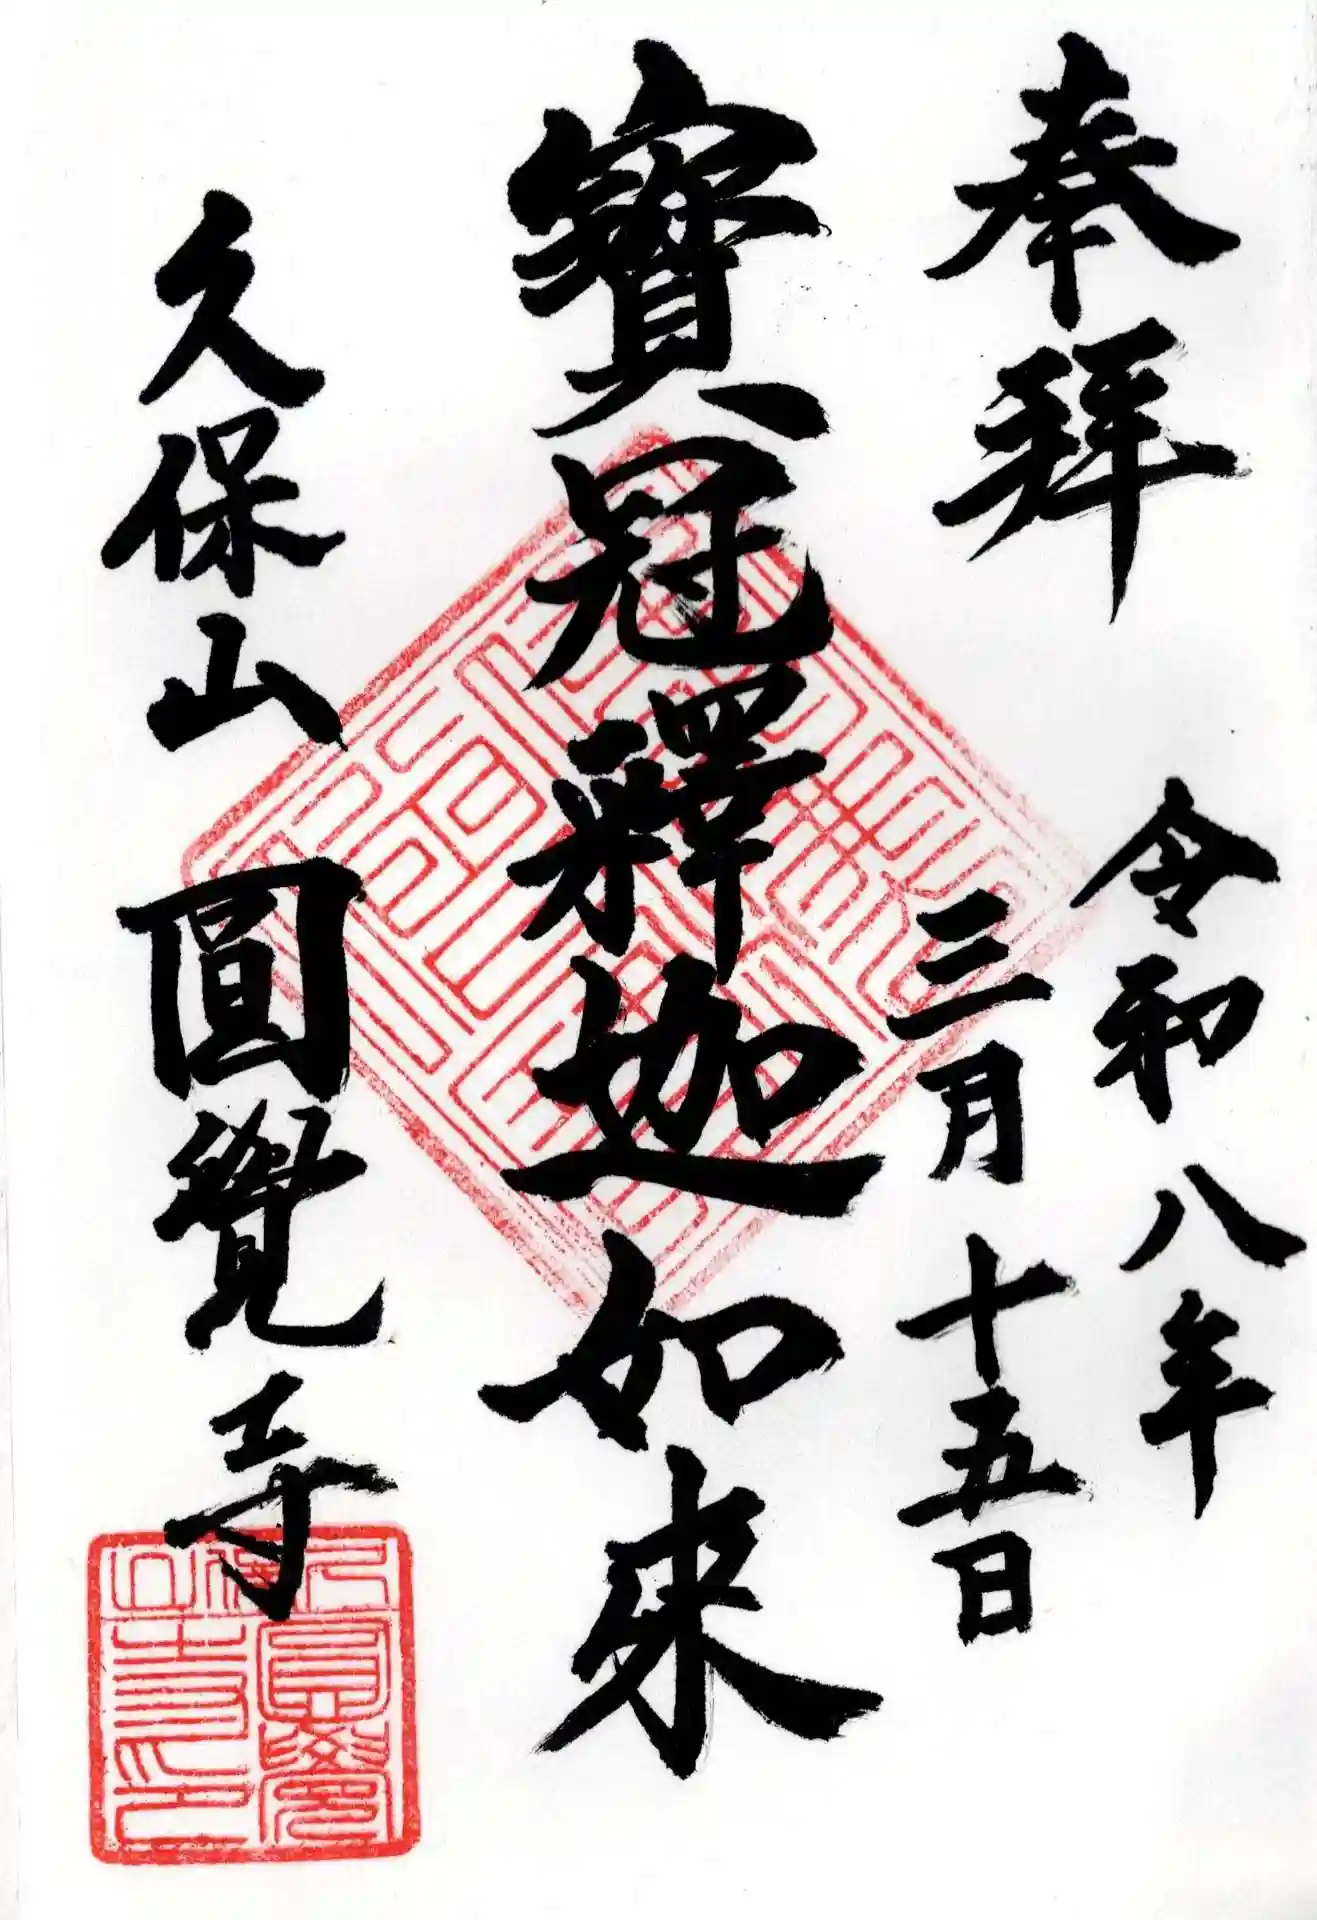 奉拜
令和八年
三月十五日
寶冠釋迦如来
久保山圓覺寺